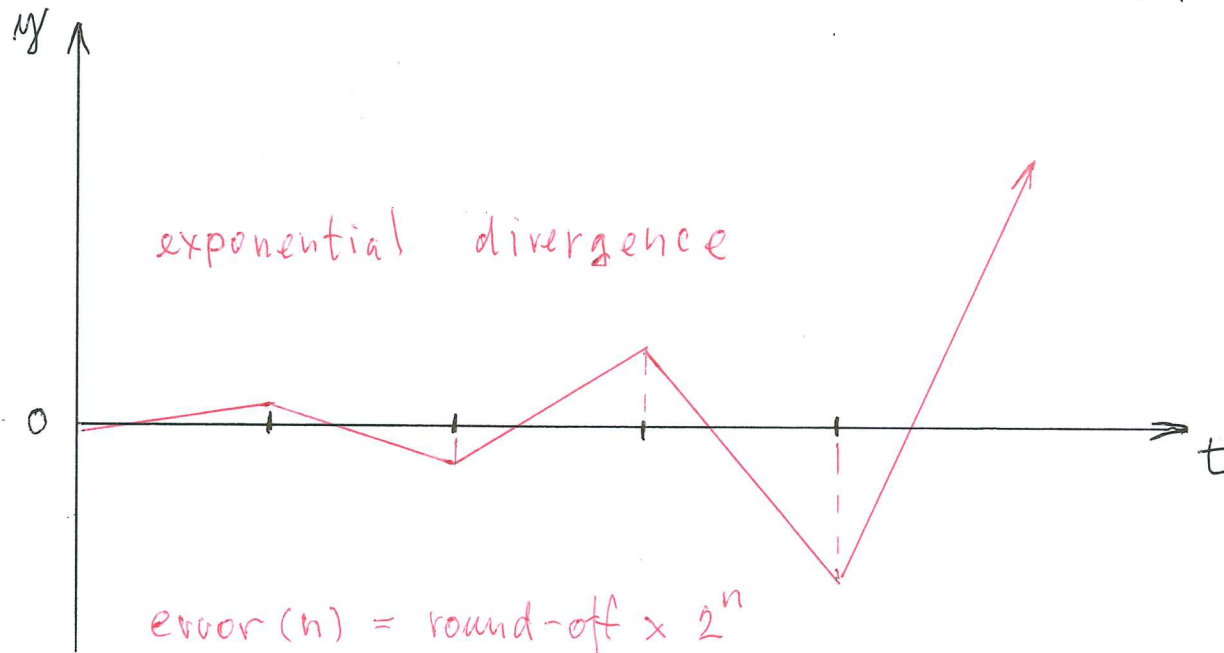 y
exponential divergence
0
t
error(n) = round-off × 2ⁿ